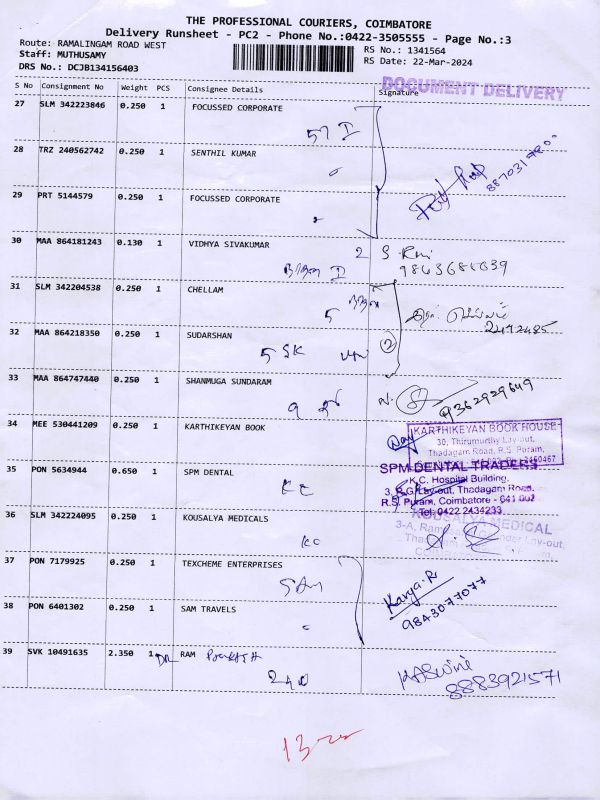 THE PROFESSIONAL COURIERS, COIMBATORE
Delivery Runsheet - PC2 - Phone No.:0422-3505555 - Page No.:3
Route: RAMALINGAM ROAD WEST
Staff: MUTHUSAMY
DRS No.: DCJB134156403
RS No.: 1341564
RS Date: 22-Mar-2024
DOCUMENT DELIVERY
S No Consignment No Weight PCS Consignee Details Signature
27 SLM 342223846 0.250 1 FOCUSSED CORPORATE
57 I
28 TRZ 240562742 0.250 1 SENTHIL KUMAR
29 PRT 5144579 0.250 1 FOCUSSED CORPORATE
30 MAA 864181243 0.130 1 VIDHYA SIVAKUMAR
2 S. Rmi
9843681039
31 SLM 342204538 0.250 1 CHELLAM
5
32 MAA 864218350 0.250 1 SUDARSHAN
5 SK
2
33 MAA 864747440 0.250 1 SHANMUGA SUNDARAM
9
9362929649
34 MEE 530441209 0.250 1 KARTHIKEYAN BOOK
KARTHIKEYAN BOOK HOUSE
30, Thirumurthy Lay-out,
Thadagam Road, R.S. Puram,
2450467
35 PON 5634944 0.650 1 SPM DENTAL
KC
SPM DENTAL TRADERS
K.C. Hospital Building,
3, R.G. Lay-out, Thadagam Road,
R.S. Puram, Coimbatore - 641 002
Tel: 0422 2434233
36 SLM 342224095 0.250 1 KOUSALYA MEDICALS
KC
KOUSALYA MEDICAL
37 PON 7179925 0.250 1 TEXCHEME ENTERPRISES
Karya.R
9843077077
38 PON 6401302 0.250 1 SAM TRAVELS
39 SVK 10491635 2.350 1 RAM
240
8883921571
13